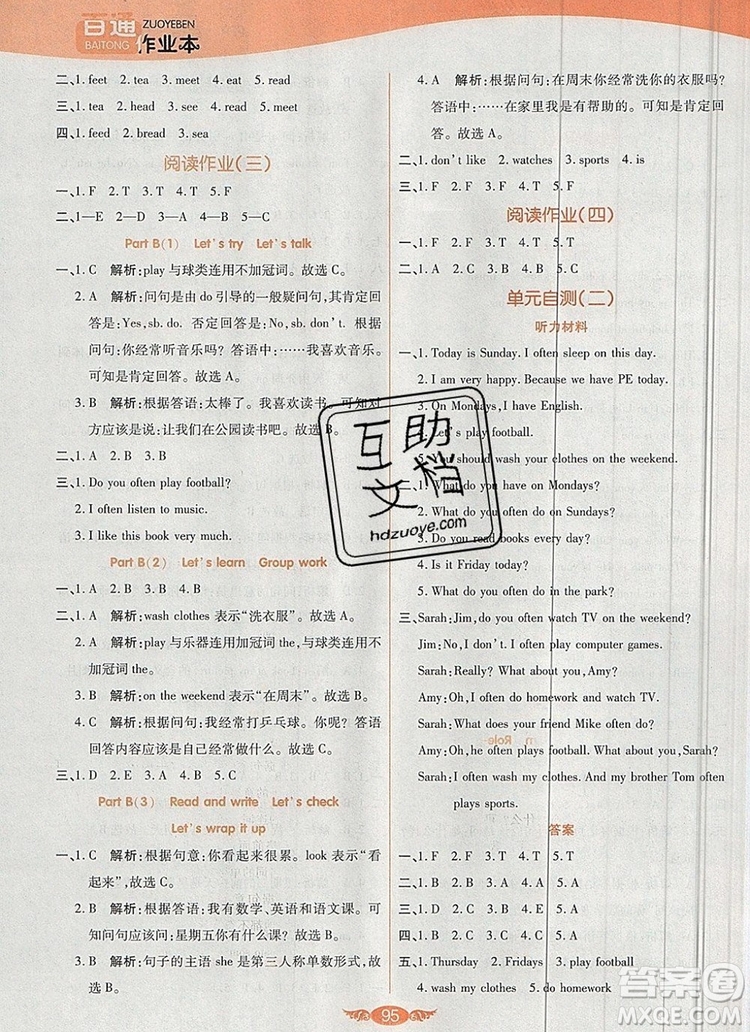 百通
BAITONG
ZUOYEBEN
作业本
二、1. feet 2. tea 3. meet 4. eat 5. read
三、1. tea 2. head 3. see 4. read 5. meet
四、1. feed 2. bread 3. sea
阅读作业(三)
一、1. F 2. T 3. T 4. F 5. T
二、1—E 2—D 3—A 4—B 5—C
Part B(1) Let's try Let's talk
一、1. C 解析:play 与球类连用不加冠词。故选 C。
2. A 解析:问句是由 do 引导的一般疑问句,其肯定回
答为:Yes,sb. do. 否定回答为:No,sb. don't. 根据
问句:你经常听音乐吗? 答语中:……我喜欢音乐。
可知是肯定回答。故选 A。
3. B 解析:根据答语:太棒了。我喜欢读书。可知对
方应该是说:让我们在公园读书吧。故选 B。
二、1. A 2. B 3. B
三、1. Do you often play football?
2. I often listen to music.
3. I like this book very much.
Part B(2) Let's learn Group work
一、1. A 2. B 3. A 4. B
二、1. A 解析:wash clothes 表示“洗衣服”。故选 A。
2. A 解析:play 与乐器连用加冠词 the,与球类连用不
加冠词 the。故选 A。
3. B 解析:on the weekend 表示“在周末”。故选 B。
4. B 解析:根据问句:我经常打乒乓球。你呢? 答语
回答内容应该是自己经常做什么。故选 B。
三、1. D 2. E 3. A 4. B 5. C
Part B(3) Read and write Let's check
Let's wrap it up
一、1. C 解析:根据句意:你看起来很累。look 表示“看
起来”,故选 C。
2. B 解析:根据答语:我有数学、英语和语文课。可
知问句应该问:星期五你有什么课? 故选 B。
3. B 解析:句子的主语 she 是第三人称单数形式,故
选 B。
4. A 解析:根据问句:在周末你经常洗你的衣服吗?
答语中:……在家里我是有帮助的。可知是肯定回
答。故选 A。
二、1. don't like 2. watches 3. sports 4. is
三、1. F 2. F 3. T 4. F 5. T
阅读作业(四)
一、1. F 2. T 3. T 4. F
单元自测(二)
听力材料
一、1. Today is Sunday. I often sleep on this day.
2. I am very happy. Because we have PE today.
3. On Mondays,I have English.
4. Let's play football.
5. You should wash your clothes on the weekend.
二、1. What do you have on Mondays?
2. What do you often do on Sundays?
3. Do you often read books every day?
4. Is it Friday today?
5. What do you often do in the park?
三、Sarah:Jim,do you often watch TV on the weekend?
Jim:No,I don't. I often play computer games.
Sarah:Really? What about you,Amy?
Amy:Oh,I often do homework and watch TV.
Sarah:What does your friend Mike often do?
Amy:Oh,he often plays football. What about you,Sarah?
Sarah:I often wash my clothes. And my brother Tom often
plays sports.
答案
一、1. F 2. F 3. T 4. T 5. T
二、1. A 2. B 3. A 4. B 5. A
三、1. C 2. A 3. D 4. B 5. E
四、1. B 2. B 3. A 4. A 5. B
五、1. Thursday 2. Fridays 3. football
4. wash my clothes 5. do homework
95
互助
文档
hdzuoye.com
答案圈
MXQE.COM